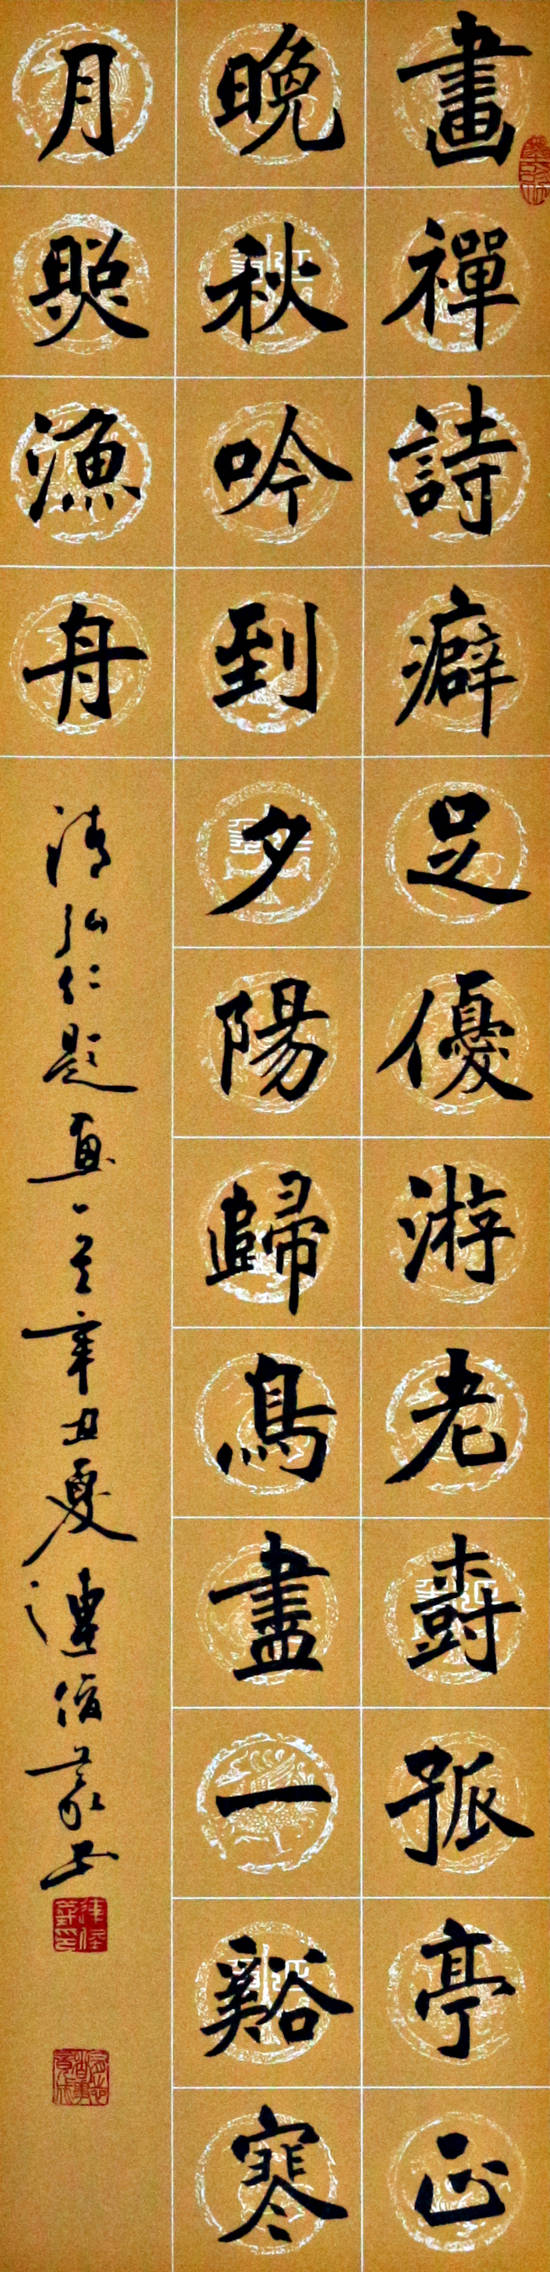 畫禪詩癖足優游老樹孤亭正
晚秋吟到夕陽歸鳥盡一谿寒
月照漁舟
清弘仁題畫一首辛丑夏連俊義書